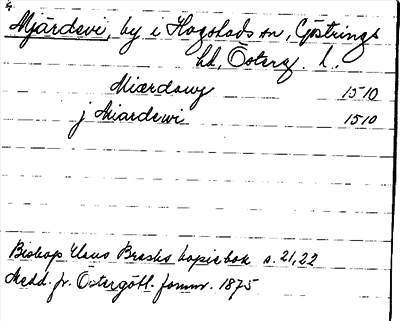 Mjärdevi, by i Hogstads sn, Göstrings
hd, Österg. l.
Miærdawj 1510
j Miardewi 1510
Biskop Hans Brasks kopiebok s. 21, 22
Medd. fr. Östergötl. fornm. 1875